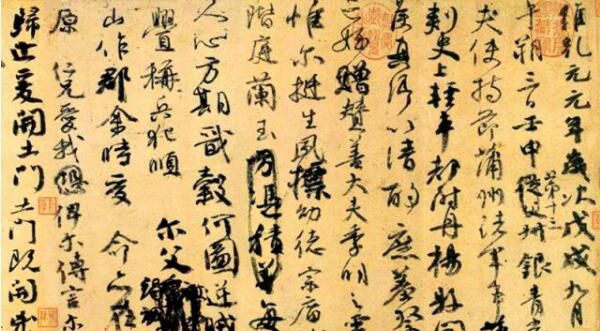 維乾元元年歲次戊戌九月
午朔三日壬申第十三從父叔銀青
夫使持節蒲州諸軍事
刺史上輕車都尉丹楊縣開
侯真卿以清酌庶羞
亡姪贈贊善大夫季明之靈
惟爾挺生夙標幼德宗廟
階庭蘭玉方憑積善每
人心方期戩穀何圖逆賊
釁稱兵犯順 爾父竭誠
山作郡余時受 命亦在
原 仁兄愛我恐俾爾傳言爾
歸止爰開土門土門既開凶